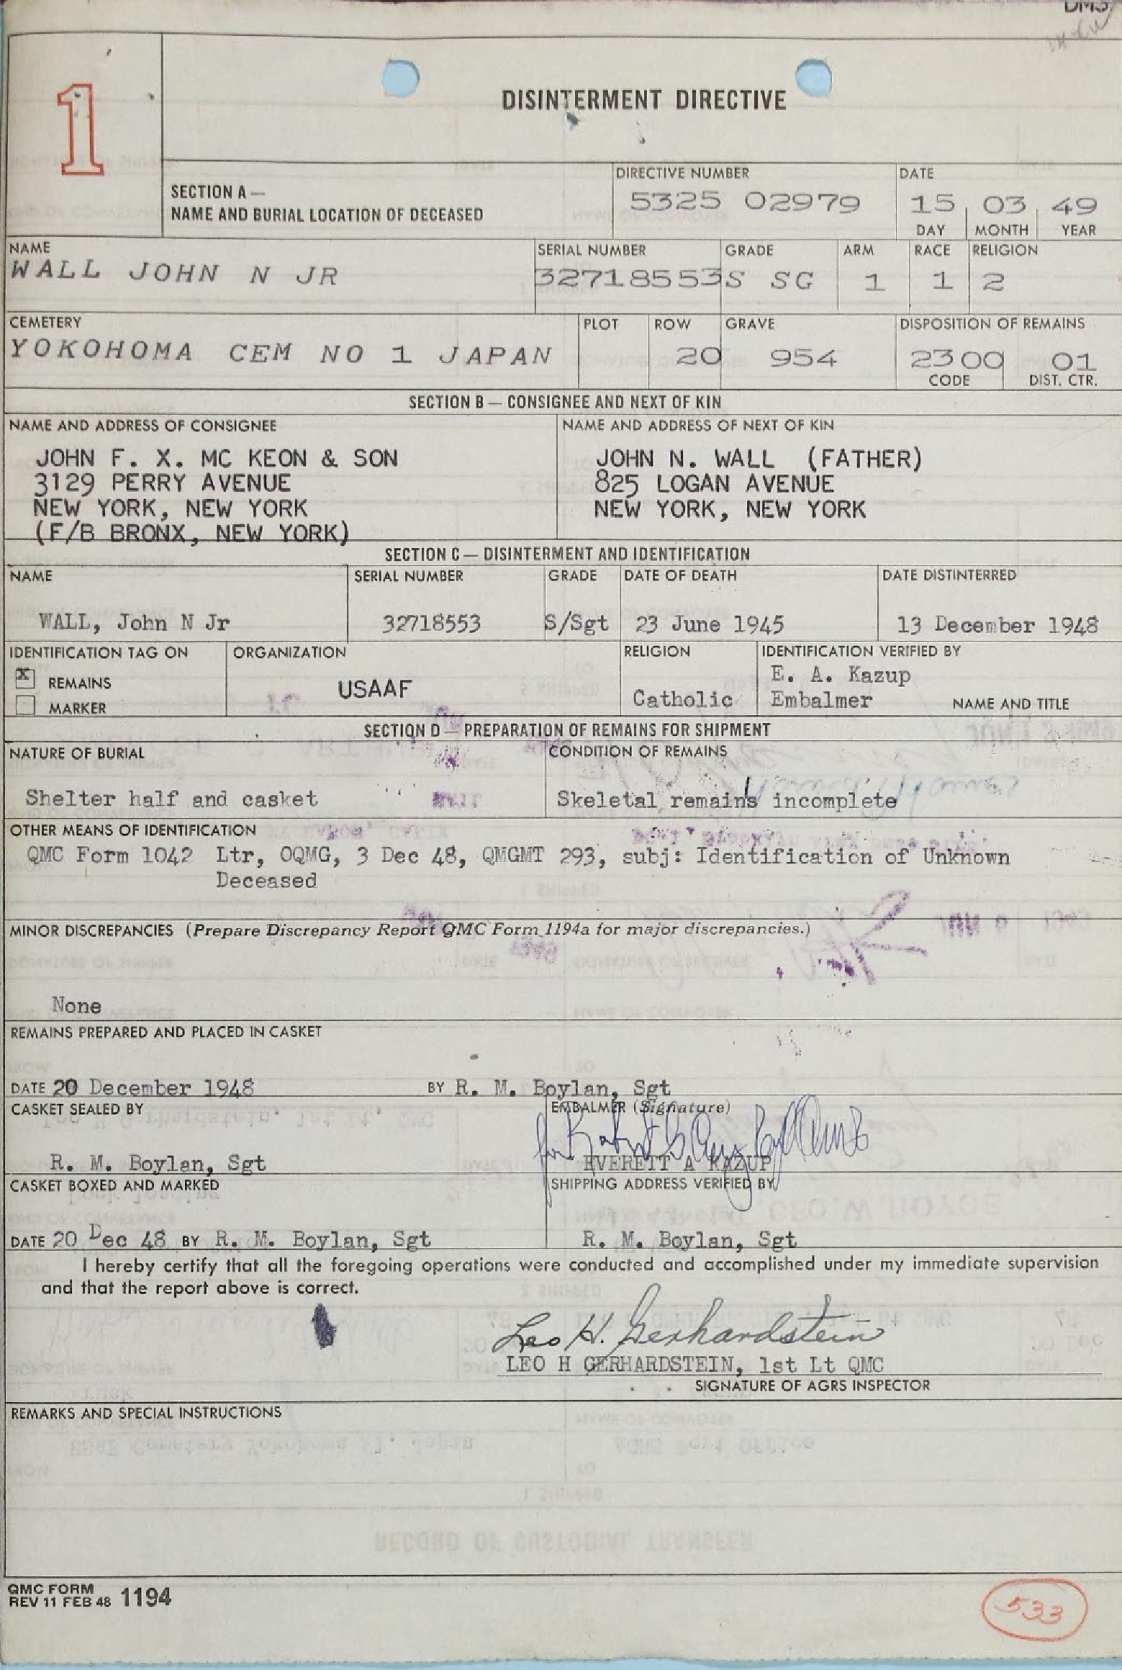 DMS
1
DISINTERMENT DIRECTIVE
SECTION A —
NAME AND BURIAL LOCATION OF DECEASED
DIRECTIVE NUMBER
5325 02979
DATE
15 03 49
DAY MONTH YEAR
NAME
WALL JOHN N JR
SERIAL NUMBER
32718553
GRADE
S SG
ARM
1
RACE
1
RELIGION
2
CEMETERY
YOKOHOMA CEM NO 1 JAPAN
PLOT
ROW
20
GRAVE
954
DISPOSITION OF REMAINS
2300 01
CODE DIST. CTR.
SECTION B — CONSIGNEE AND NEXT OF KIN
NAME AND ADDRESS OF CONSIGNEE
JOHN F. X. MC KEON & SON
3129 PERRY AVENUE
NEW YORK, NEW YORK
(F/B BRONX, NEW YORK)
NAME AND ADDRESS OF NEXT OF KIN
JOHN N. WALL (FATHER)
825 LOGAN AVENUE
NEW YORK, NEW YORK
SECTION C — DISINTERMENT AND IDENTIFICATION
NAME
WALL, John N Jr
SERIAL NUMBER
32718553
GRADE
S/Sgt
DATE OF DEATH
23 June 1945
DATE DISTINTERRED
13 December 1948
IDENTIFICATION TAG ON
X REMAINS
MARKER
ORGANIZATION
USAAF
RELIGION
Catholic
IDENTIFICATION VERIFIED BY
E. A. Kazup
Embalmer NAME AND TITLE
SECTION D — PREPARATION OF REMAINS FOR SHIPMENT
NATURE OF BURIAL
Shelter half and casket
CONDITION OF REMAINS
Skeletal remains incomplete
OTHER MEANS OF IDENTIFICATION
QMC Form 1042 Ltr, OQMG, 3 Dec 48, QMGMT 293, subj: Identification of Unknown
Deceased
MINOR DISCREPANCIES (Prepare Discrepancy Report QMC Form 1194a for major discrepancies.)
None
REMAINS PREPARED AND PLACED IN CASKET
DATE 20 December 1948 BY R. M. Boylan, Sgt
CASKET SEALED BY
R. M. Boylan, Sgt
EMBALMER (Signature)
EVERETT A KAZUP
CASKET BOXED AND MARKED
DATE 20 Dec 48 BY R. M. Boylan, Sgt
SHIPPING ADDRESS VERIFIED BY
R. M. Boylan, Sgt
I hereby certify that all the foregoing operations were conducted and accomplished under my immediate supervision
and that the report above is correct.
Leo H. Gerhardstein
LEO H GERHARDSTEIN, 1st Lt QMC
SIGNATURE OF AGRS INSPECTOR
REMARKS AND SPECIAL INSTRUCTIONS
QMC FORM
REV 11 FEB 48 1194
533